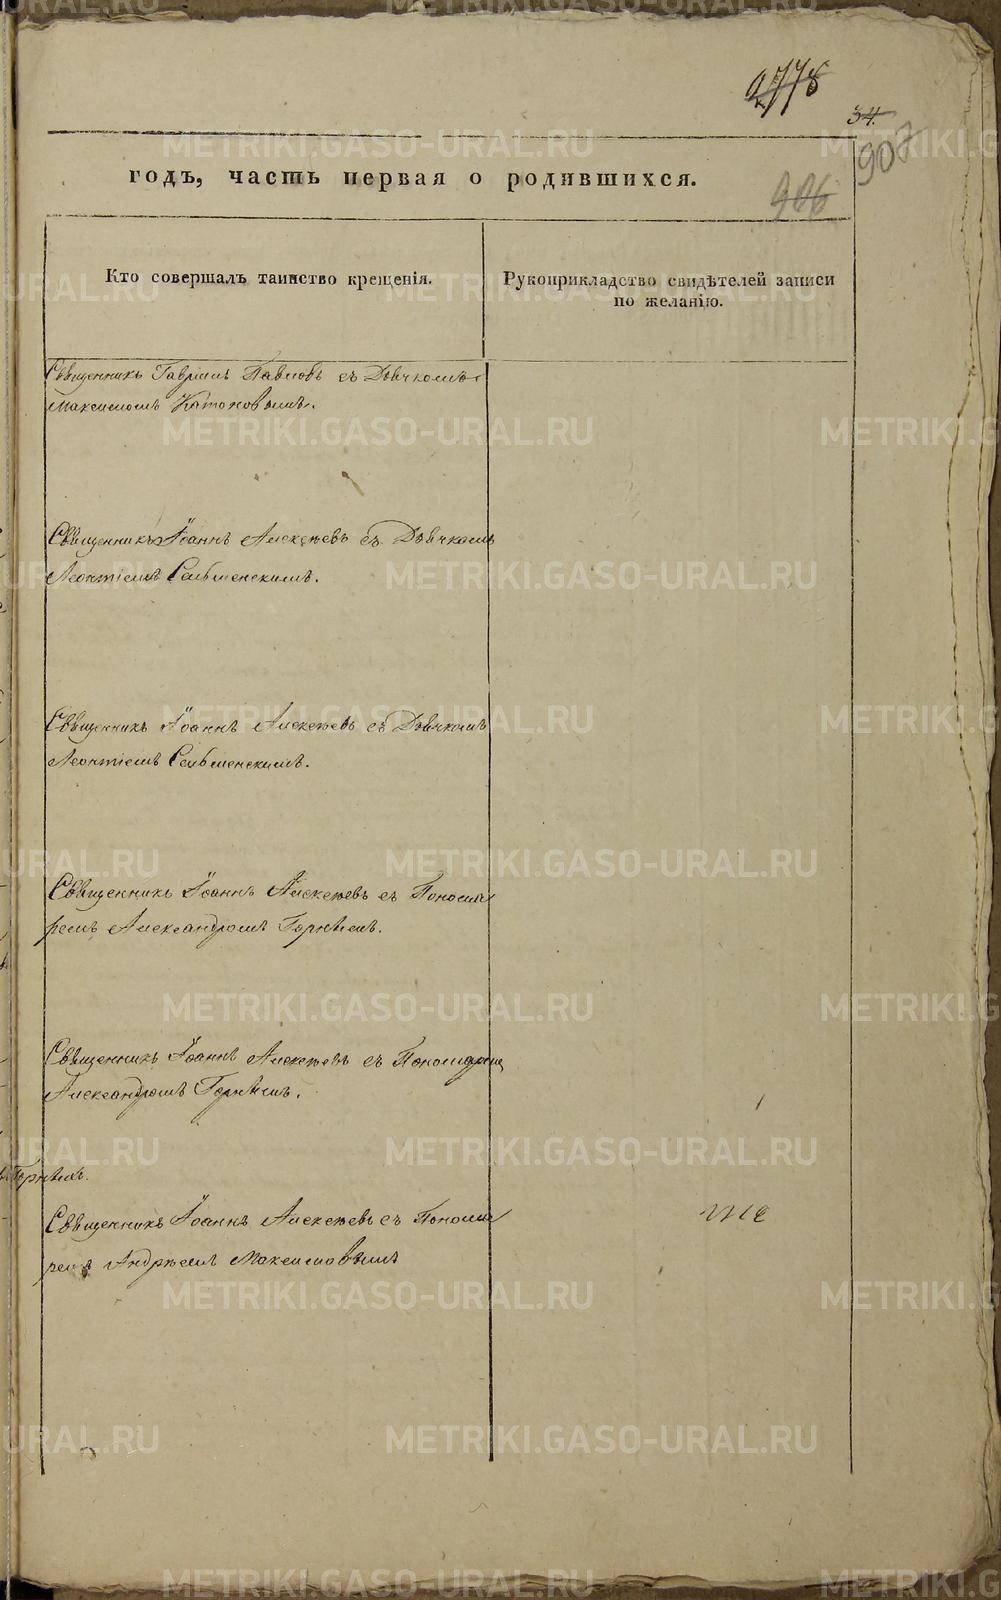 2778
34
907
годъ, часть первая о родившихся.
906
Кто совершалъ таинство крещенія.
Рукоприкладство свидѣтелей записи
по желанію.
Священникъ Гавріилъ Павловъ съ Дьячкомъ
Максимомъ Катоновымъ.
Священникъ Іоаннъ Алексѣевъ съ Дьячкомъ
Леонтіемъ Сельменскимъ.
Священникъ Іоаннъ Алексѣевъ съ Дьячкомъ
Леонтіемъ Сельменскимъ.
Священникъ Іоаннъ Алексѣевъ съ Понома
ремъ Александромъ Горныемъ.
Священникъ Іоаннъ Алексѣевъ съ Пономаремъ
Александромъ Горныемъ.
Священникъ Іоаннъ Алексѣевъ съ Понома
ремъ Андрѣемъ Максимовымъ
METRIKI.GASO-URAL.RU